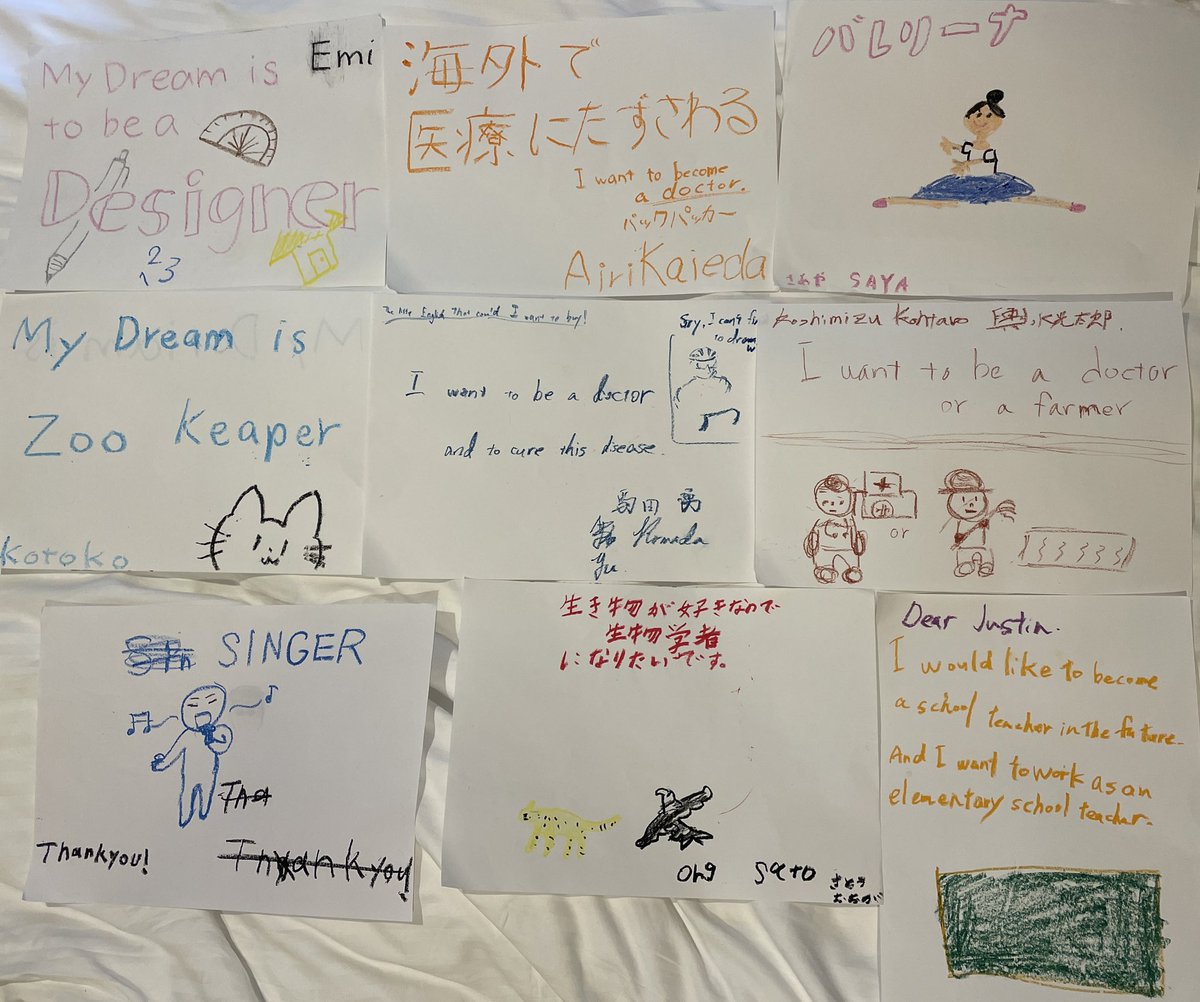 My Dream is
Emi
to be a
Designer
123
海外で
医療にたずさわる
I want to become
a doctor.
バックパッカー
Airi Kaieda
バレリーナ
さあや SAYA
My Dream is
Zoo Keaper
Kotoko
English That could I want to buy!
Sry, I can't
to draw
I want to be a doctor
and to cure this disease.
田
Komada
Yu
Koshimizu Kohtaro 輿水光太郎.
I want to be a doctor
or a farmer
or
SINGER
Thankyou!
Thankyou
生き物が好きなので
生物学者
になりたいです。
Sato
さとう
Dear Justin.
I would like to become
a school teacher in the future.
And I want to work as an
elementary school teacher.